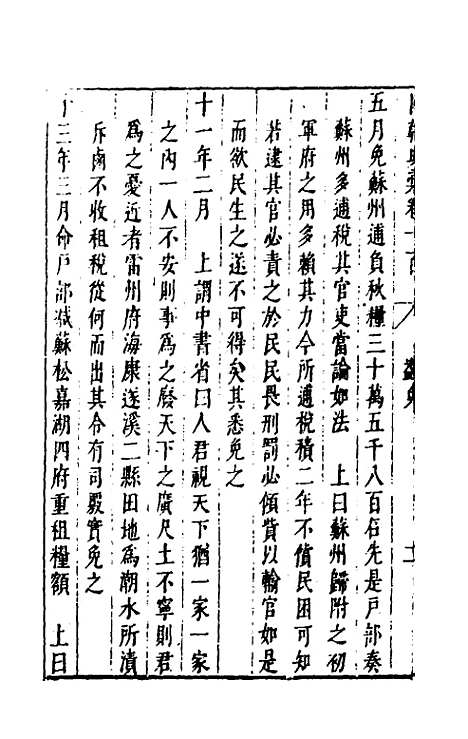 五月免蘇州逋負秋糧三十萬五千八百石先是戶部奏
蘇州多逋稅其官吏當論如法　上曰蘇州歸附之初
軍府之用多賴其力今所逋稅積二年不償民困可知
若逮其官必責之於民民畏刑罰必傾貲以輸官如是
而欲民生之遂不可得矣其悉免之
十一年二月　上謂中書省曰人君視天下猶一家一家
之內一人不安則事為之廢天下之廣尺土不寧則君
為之憂近者雷州府海康遂溪二縣田地為潮水所漬
斥鹵不收租稅從何而出其令有司覈實免之
十三年三月命戶部減蘇松嘉湖四府重租糧額　上曰